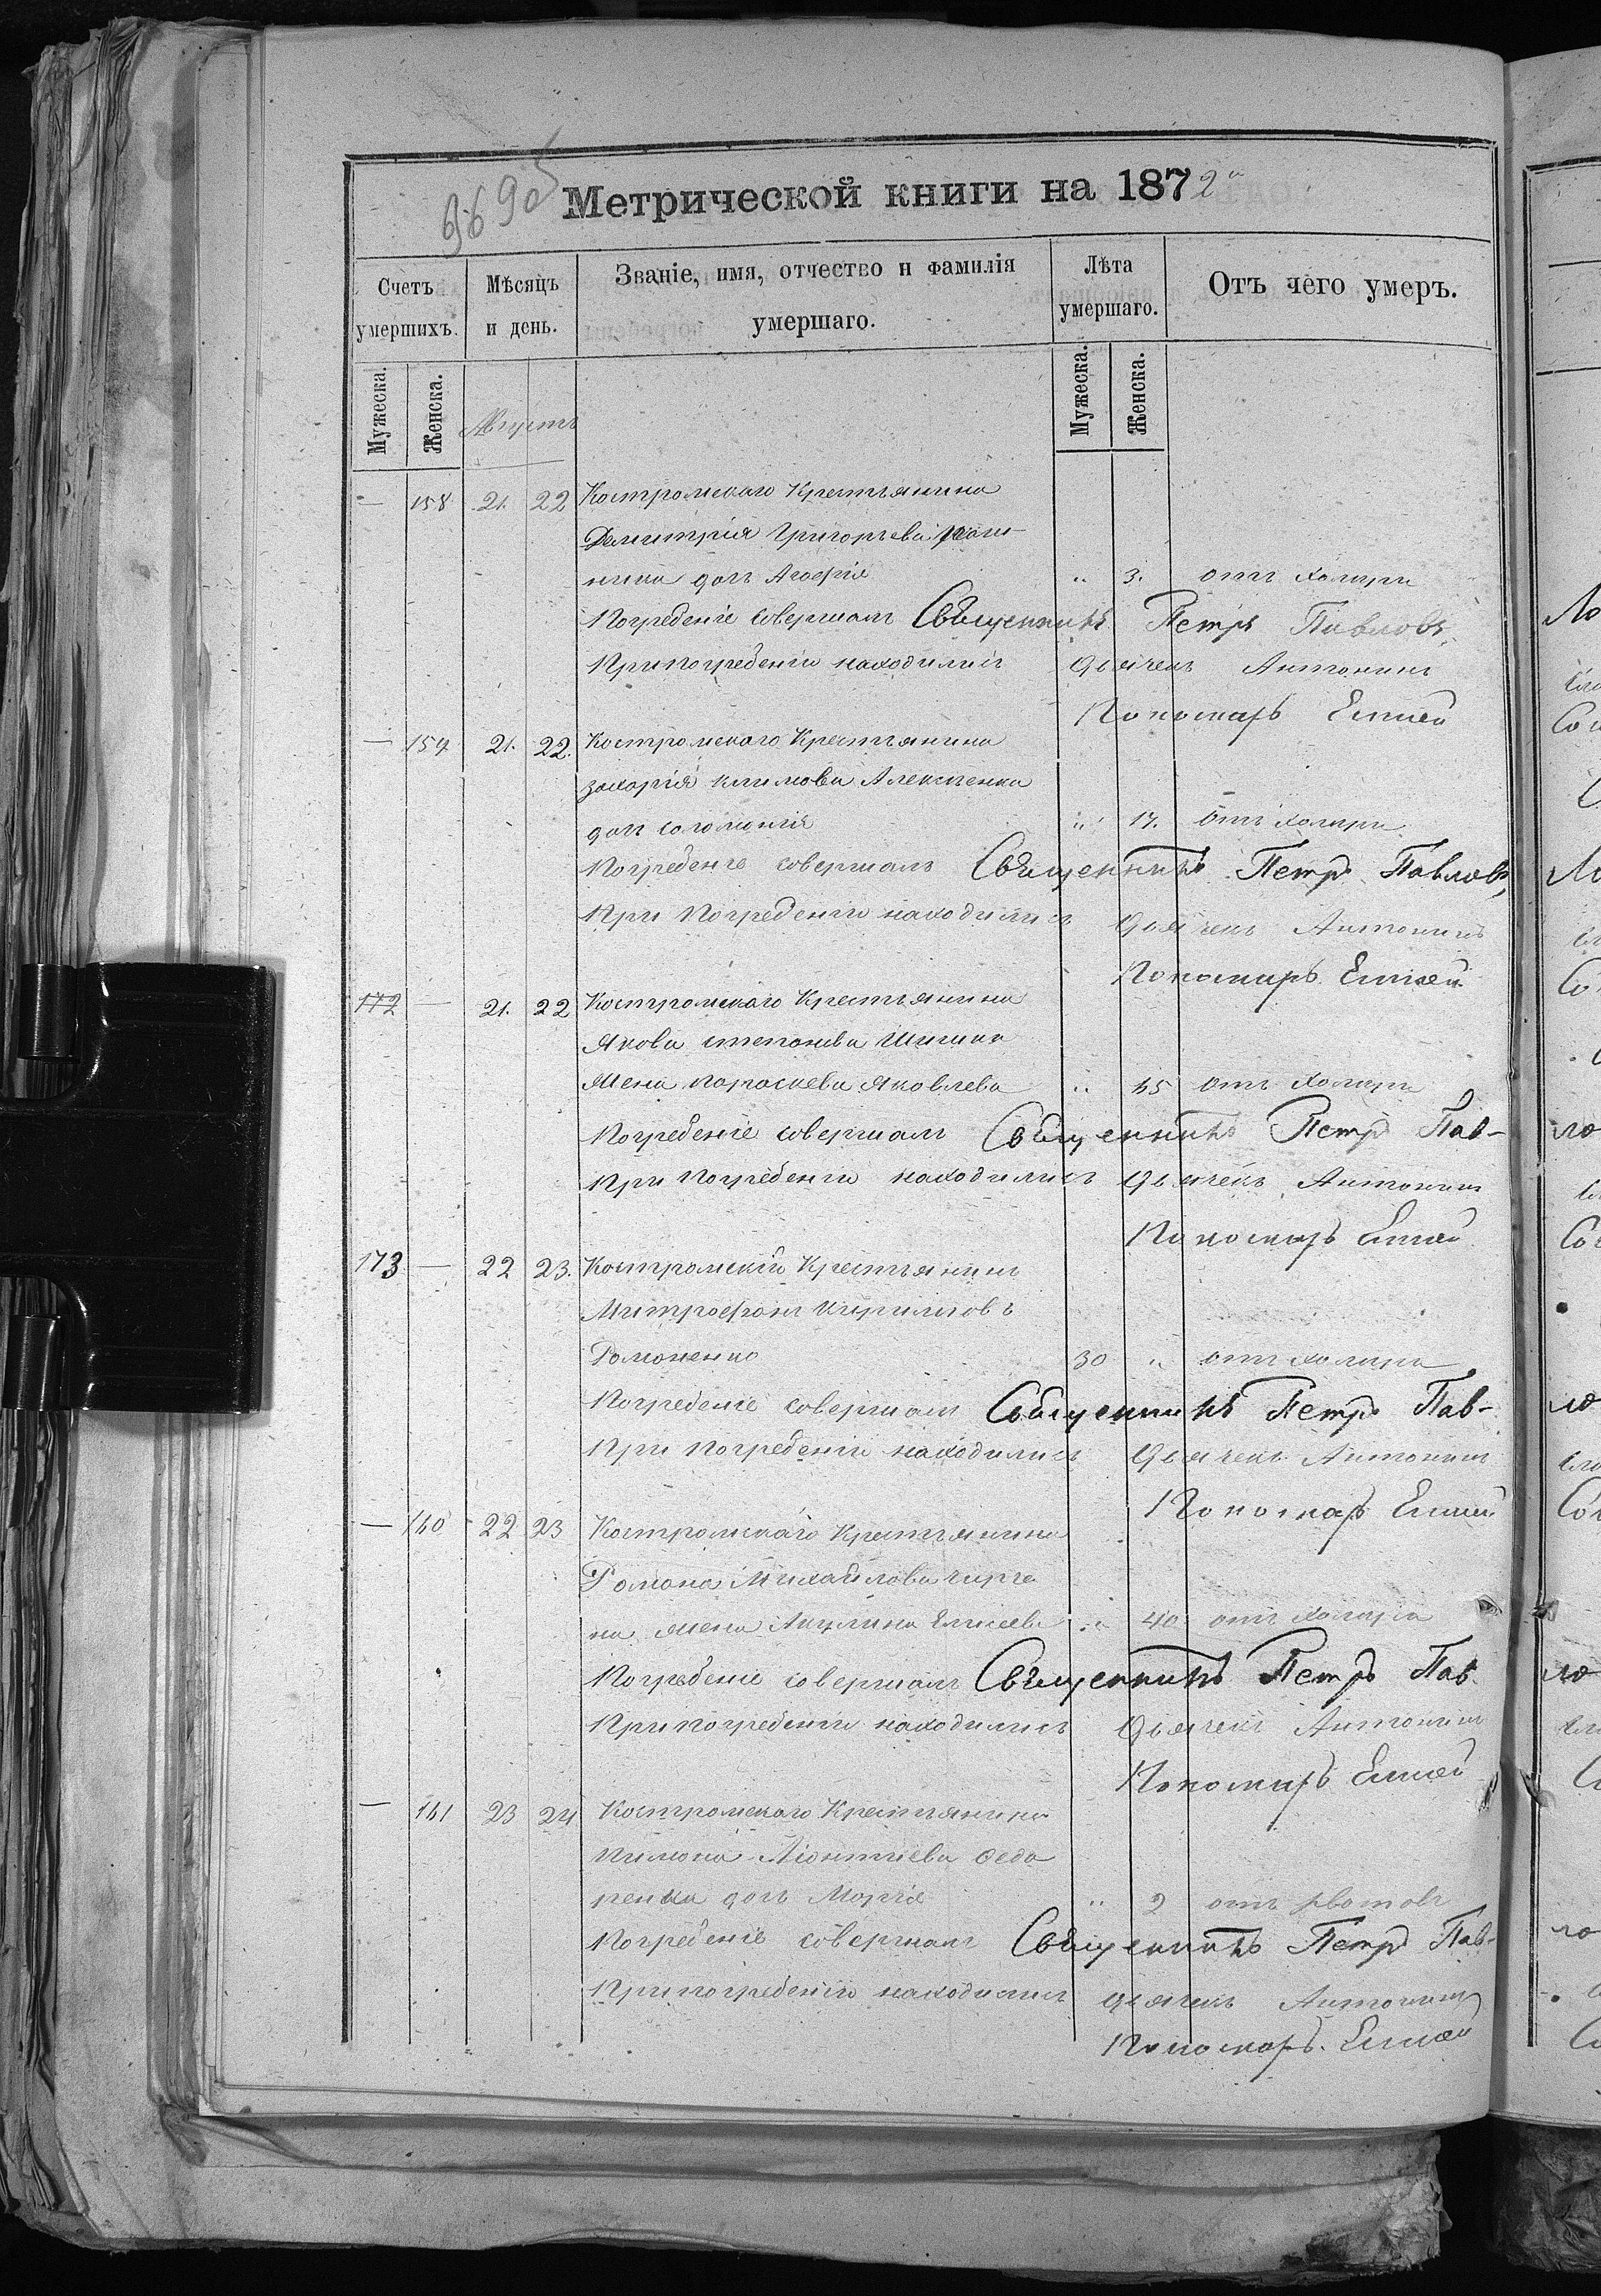 Метрической книги на 1872
Счетъ умершихъ.
Мѣсяцъ и день.
Званіе, имя, отчество и фамилія умершаго.
Лѣта умершаго.
Отъ чего умеръ.
Мужеска.
Женска.
Августъ
Мужеска.
Женска.
— 158 21. 22 Костромскаго Крестьянина
Димитрія Григорьева
дочь Агафія " 3. отъ холеры
Погребеніе совершалъ Священникъ Петръ Павловъ,
При погребеніи находились дьячекъ Антонинъ
Пономарь
— 159 21. 22. Костромскаго Крестьянина
захарія климова Алексѣенка
дочь соломонія " 17. отъ холеры
Погребеніе совершалъ Священникъ Петръ Павловъ,
При погребеніи находились дьячекъ Антонинъ
Пономарь
172 — 21. 22 Костромскаго Крестьянина
Якова степанова
жена параскева Яковлева " 45 отъ холеры
Погребеніе совершалъ Священникъ Петръ Пав-
При погребеніи находились дьячекъ Антонинъ
Пономарь
173 — 22 23. Костромскій Крестьянинъ
Митрофанъ кириловъ
Романенко 30 " отъ холеры
Погребеніе совершалъ Священникъ Петръ Пав-
При погребеніи находились дьячекъ Антонинъ
Пономарь
— 160 22 23 Костромскаго Крестьянина
Романа Михайлова
на жена Акулина Елисеева " 40 отъ холеры
Погребеніе совершалъ Священникъ Петръ Пав-
При погребеніи находились дьячекъ Антонинъ
Пономарь
— 161 23 24 Костромскаго Крестьянина
Леонтіева Федо
ренка дочь Марія " 2 отъ
Погребеніе совершалъ Священникъ Петръ Пав-
При погребеніи находились дьячекъ Антонинъ
Пономарь